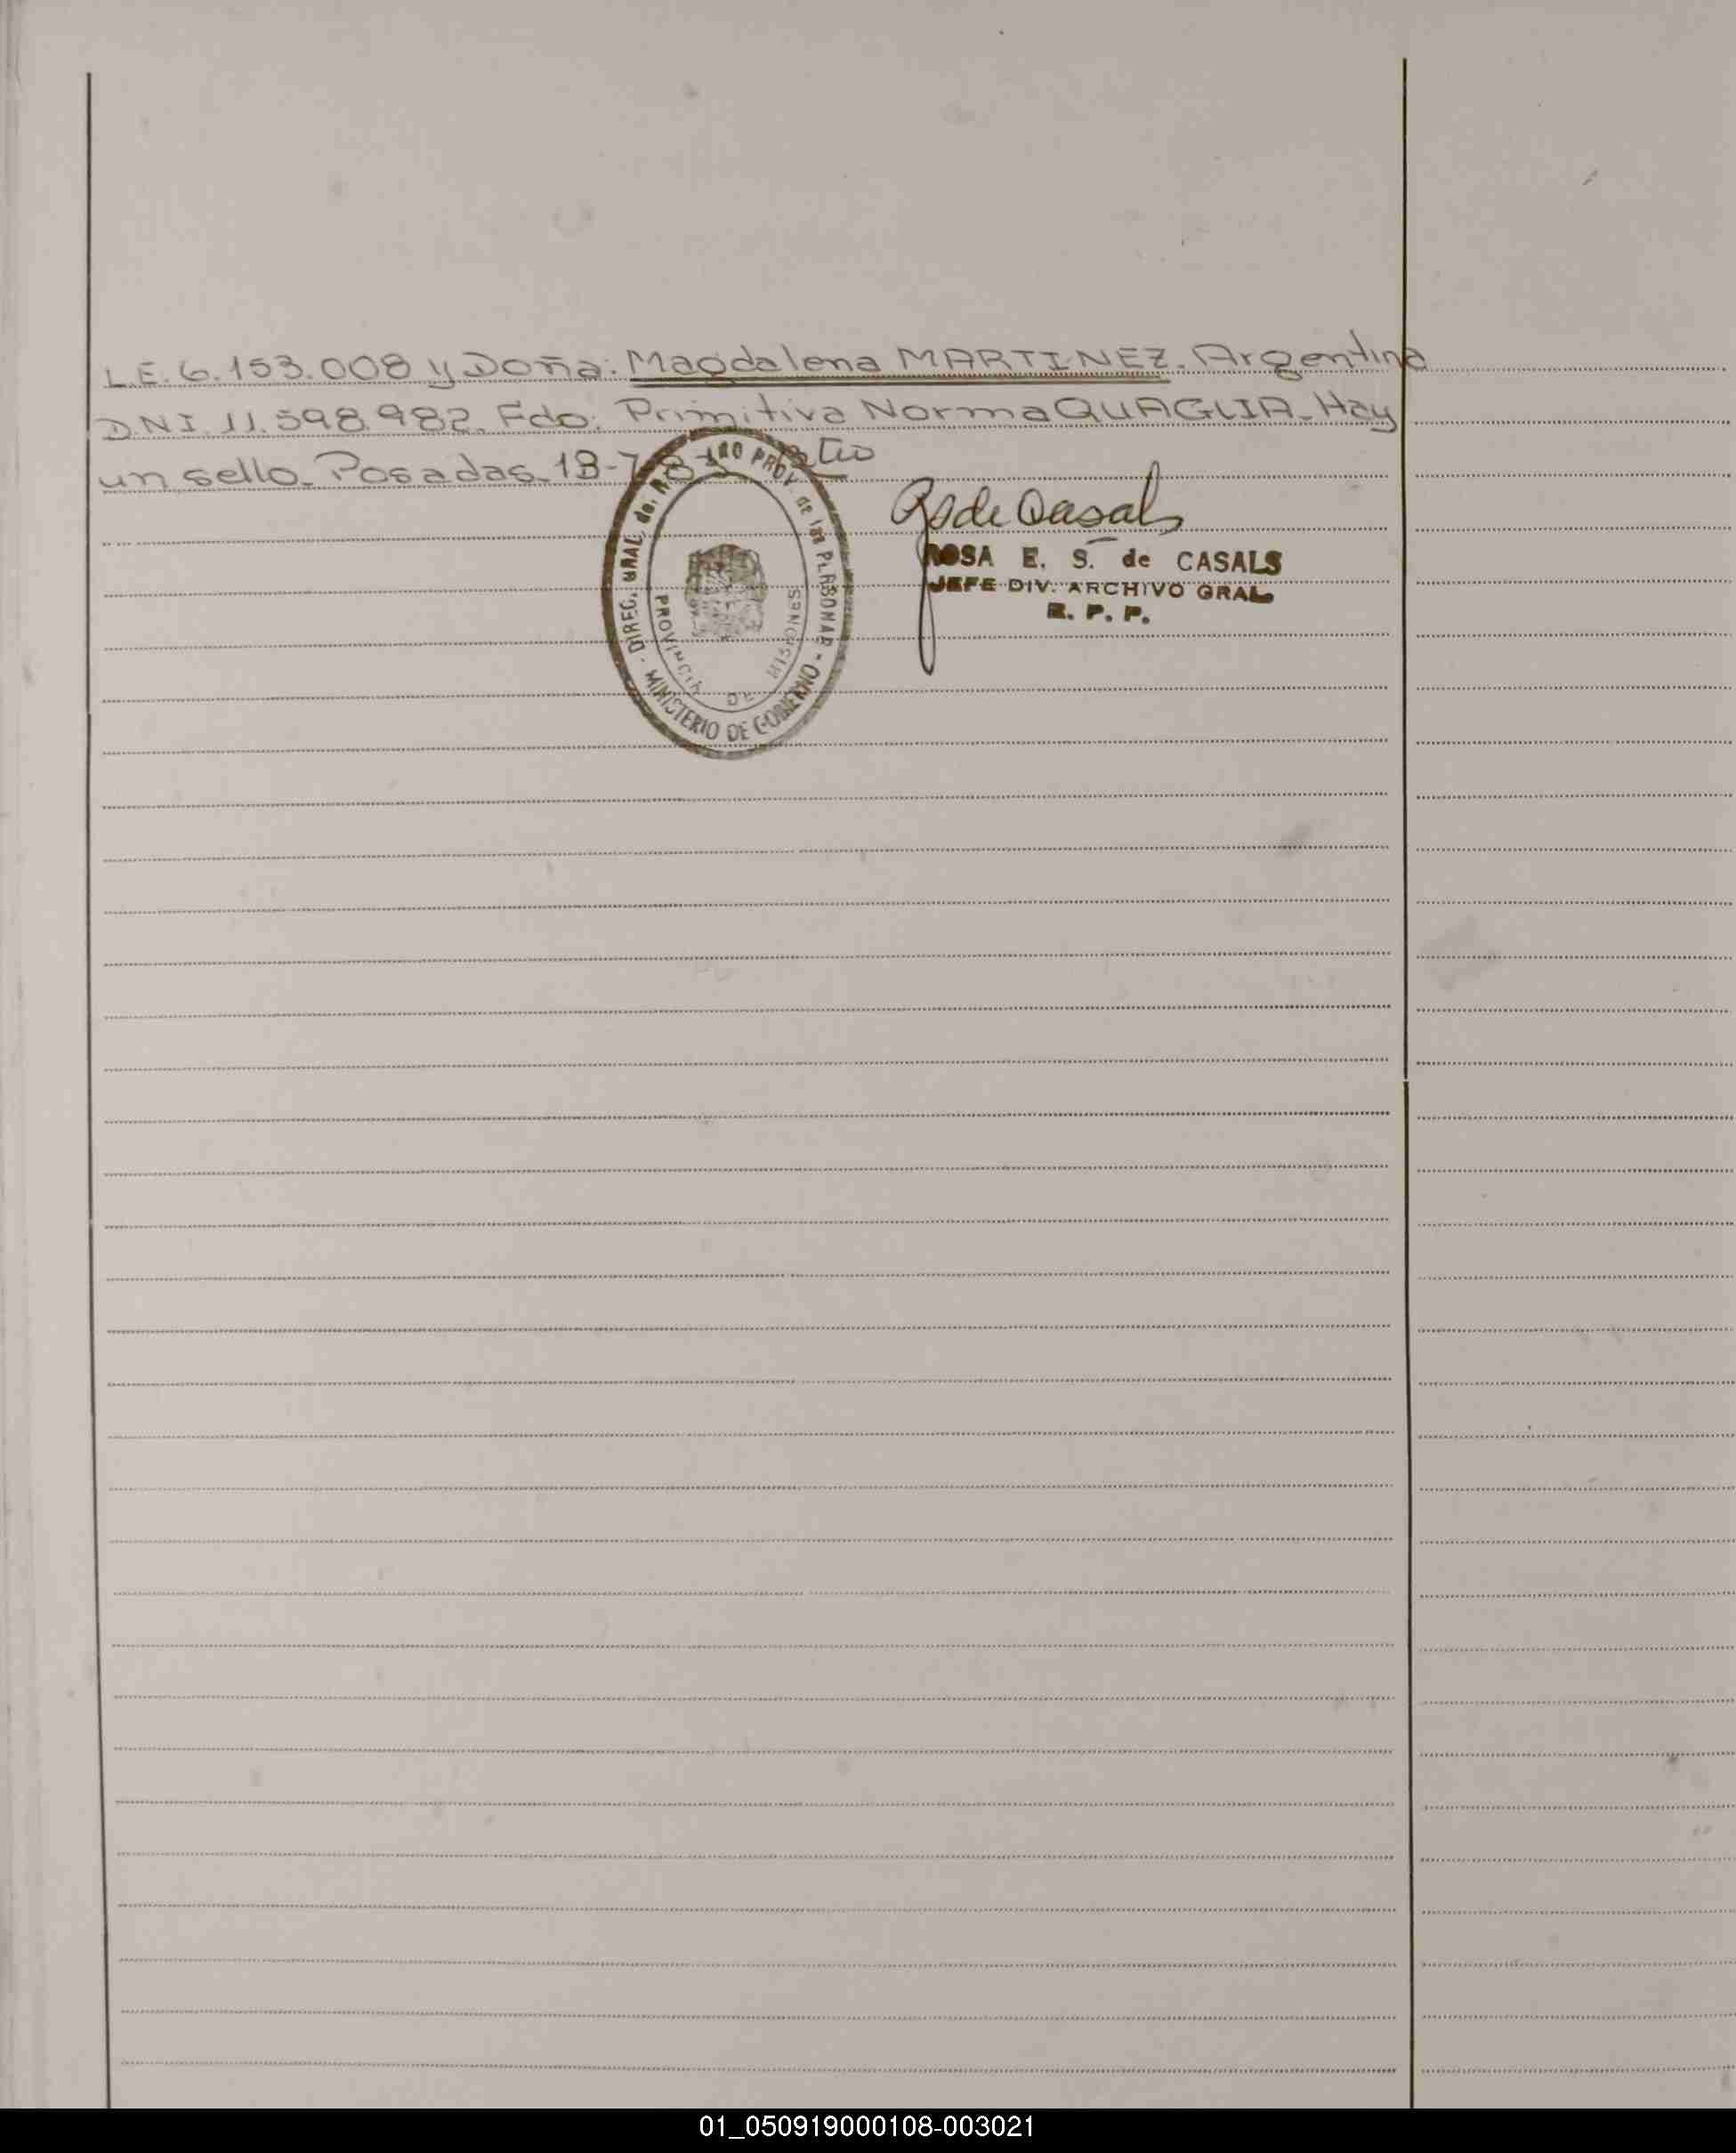 L.E. 6.153.008 y Doña: Magdalena MARTINEZ. Argentina
DNI. 11.598.982. Fdo: Primitiva Norma QUAGLIA. Hay
un sello. Posadas. 13-7-83
DIREC. GRAL. del PROV. de las PERSONAS - MINISTERIO DE GOBIERNO -
PROVINCIA DE MISIONES
R S de Casals
ROSA E. S. de CASALS
JEFE DIV. ARCHIVO GRAL
R. P. P.
01_050919000108-003021